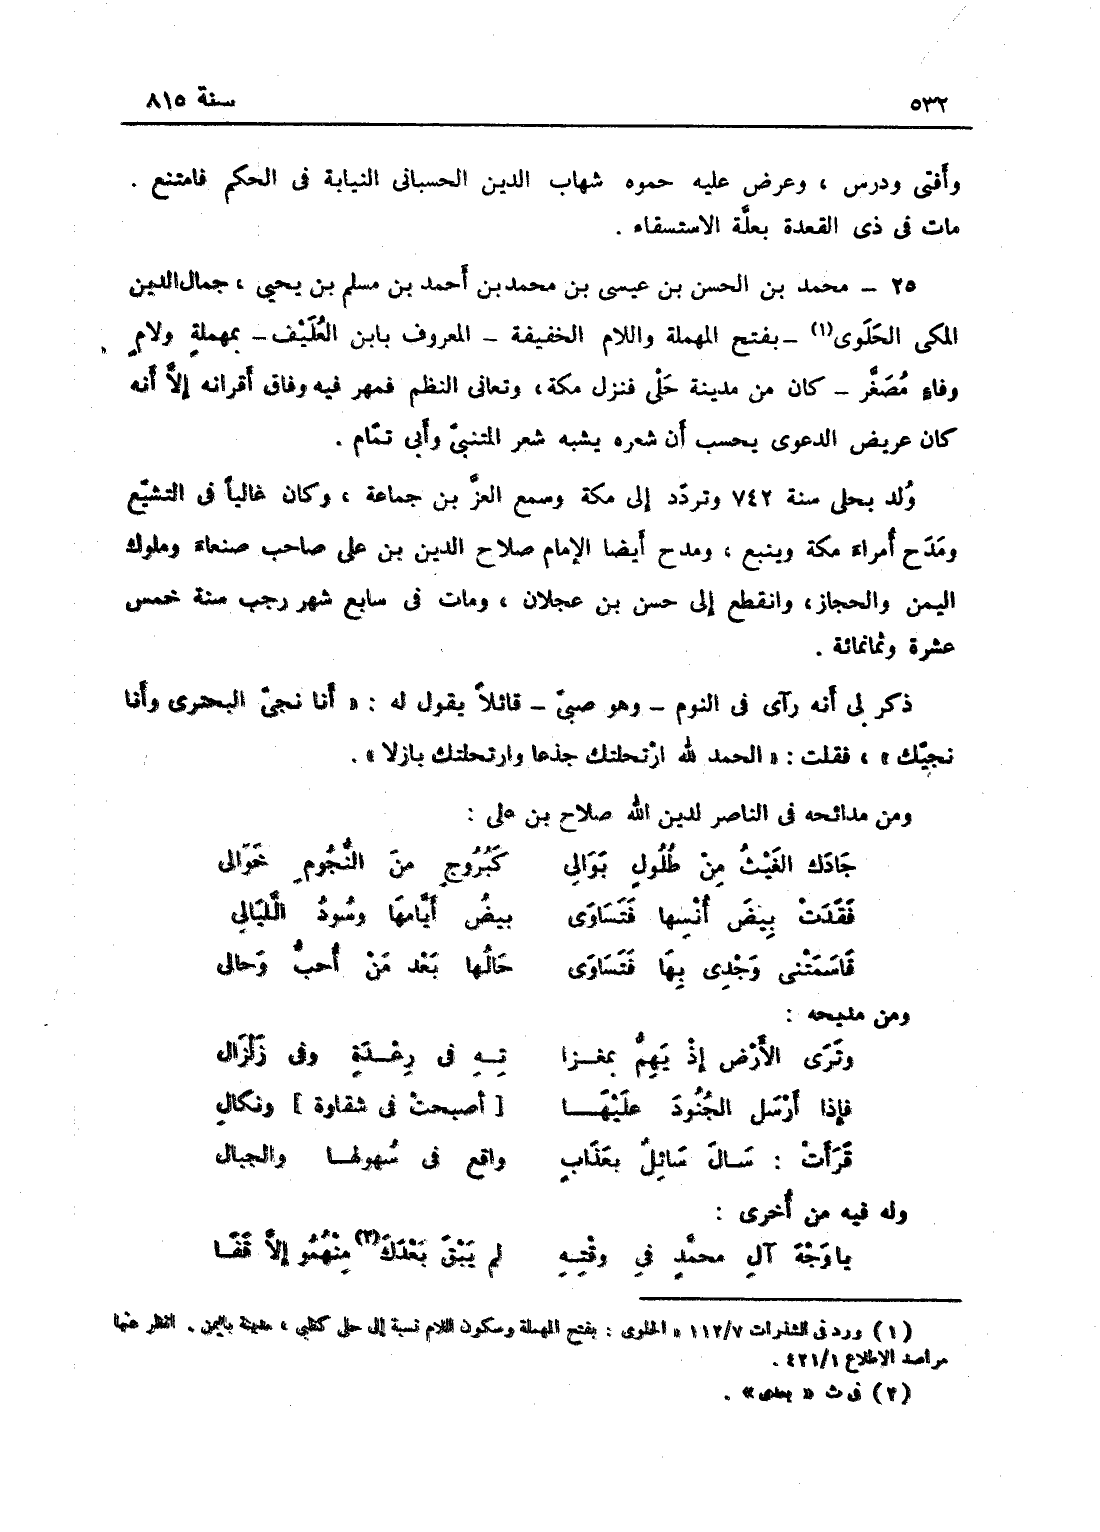 ٥٣٢ سنة ٨١٥
وأَفتى ودرس ، وعرض عليه حموه شهاب الدين الحسبانى النيابة فى الحكم فامتنع .
مات فى ذى القعدة بعلَّة الاستسقاء .
٢٥ – محمد بن الحسن بن عيسى بن محمد بن أَحمد بن مسلم بن يحيى ، جمال الدين
المكى الحَلَوى(١) – بفتح المهملة واللام الخفيفة – المعروف بابن العُلَيْف – بمهملةٍ ولامٍ
وفاءٍ مُصَغَّر – كان من مدينة حَلْى فنزل مكة ، وتعانى النظم فمهر فيه وفاق أَقرانه إلاَّ أَنه
كان عريض الدعوى يحسب أَن شعره يشبه شعر المتنبىّ وأَبى تمّام .
وُلد بحلى سنة ٧٤٢ وتردّد إلى مكة وسمع العزَّ بن جماعة ، وكان غالياً فى التشيّع
ومَدَح أُمراءَ مكة وينبع ، ومدح أَيضا الإمام صلاح الدين بن على صاحب صنعاءَ وملوك
اليمن والحجاز ، وانقطع إلى حسن بن عجلان ، ومات فى سابع شهر رجب سنة خمس
عشرة وثمانمائة .
ذكر لى أَنه رآى فى النوم – وهو صبىّ – قائلاً يقول له : « أَنا نجىّ البحترى وأَنا
نجيّك » ، فقلت : « الحمد لله ارْتحلتك جذعا وارتحلتك بازلا » .
ومن مدائحه فى الناصر لدين الله صلاح بن على :
جَادَك الغَيْثُ مِنْ طُلُولٍ بَوَالِى كَبُرُوجٍ منَ النُّجُومِ خَوَالى
فَقَدَتْ بِيضَ أُنْسِها فَتَسَاوَى بيضُ أَيَّامهَا وسُودُ الَّليَالِى
قَاسَمَتْنى وَجْدِى بِهَا فَتَسَاوَى حَالُها بَعْد مَنْ أُحبُّ وَحالى
ومن مديحه :
وتَرَى الأَرْض إذْ يَهِمُّ بمغـزا تِـهِ فى رِعْـدَةٍ وفى زَلْزَال
فإِذا أَرْسَل الجُنُودَ علَيْهَــا [ أصبحتْ فى شقاوة ] ونكالِ
قَرَأَتْ : سَـالَ سَائِلٌ بعَذَابٍ واقع فى سُهولهـا والجبال
وله فيه من أُخرى :
ياوَجْهَ آلِ محمَّدٍ فىِ وقْتِـهِ لم يَبْقَ بَعْدَكَ(٢) مِنْهُمُو إلاَّ قَفَـا
(١) ورد فى الشذرات ١١٢/٧ « الحلوى : بفتح المهملة وسكون اللام نسبة إلى حلى كظبى ، مدينة باليمن . انظر عنها
مراصد الاطلاع ٤٢١/١ .
(٢) فى ث « بعدى » .